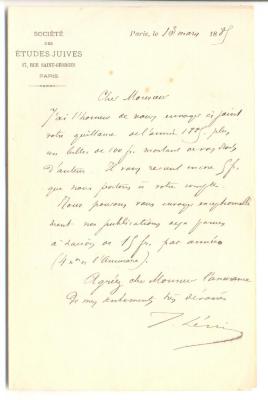 SOCIÉTÉ
DES
ÉTUDES JUIVES
17, RUE SAINT-GEORGES
PARIS
Paris, le 13 mars 1885
Cher Monsieur
J'ai l'honneur de vous envoyer ci joint
votre quittance de l'année 1885 plus
un billet de 100 fr. montant de vos droits
d'auteur. Il vous revient encore 5 fr.
que nous portons à votre compte.
Nous pouvons vous envoyer exceptionnelle
ment nos publications déjà parues
à raison de 15 fr. par année
(4 nos et l'Annuaire).
Agréez cher Monsieur l'assurance
de mes sentiments très dévoués